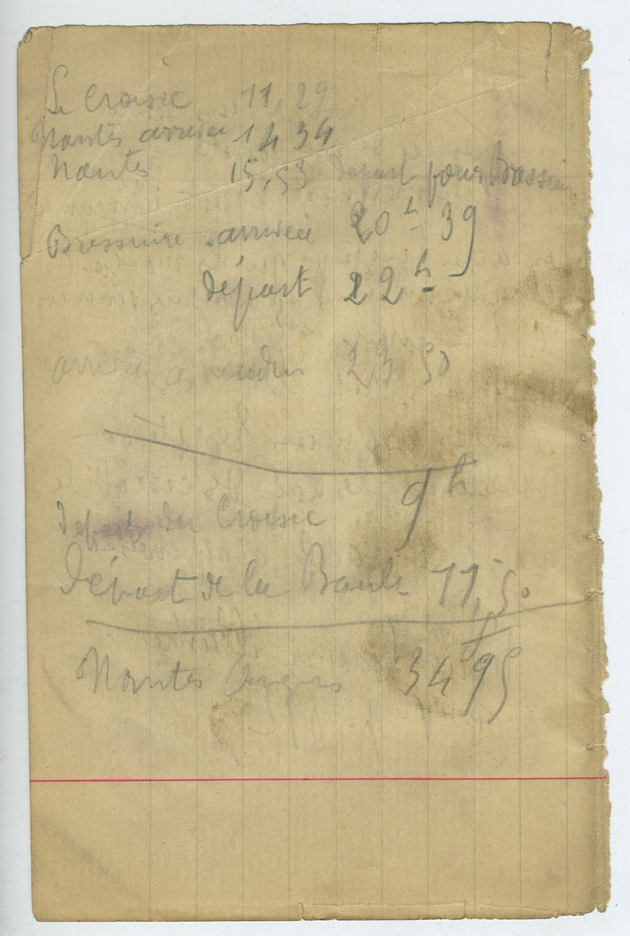 Le Croisic 11,29
Nantes arrivée 14 34
Nantes 15,53 départ pour Bressuire
Bressuire arrivée 20h 39
départ 22h
arrivée à 23 50
9h
départ du Croisic
Départ de la Baule 11,50
f
Nantes Angers 34 95